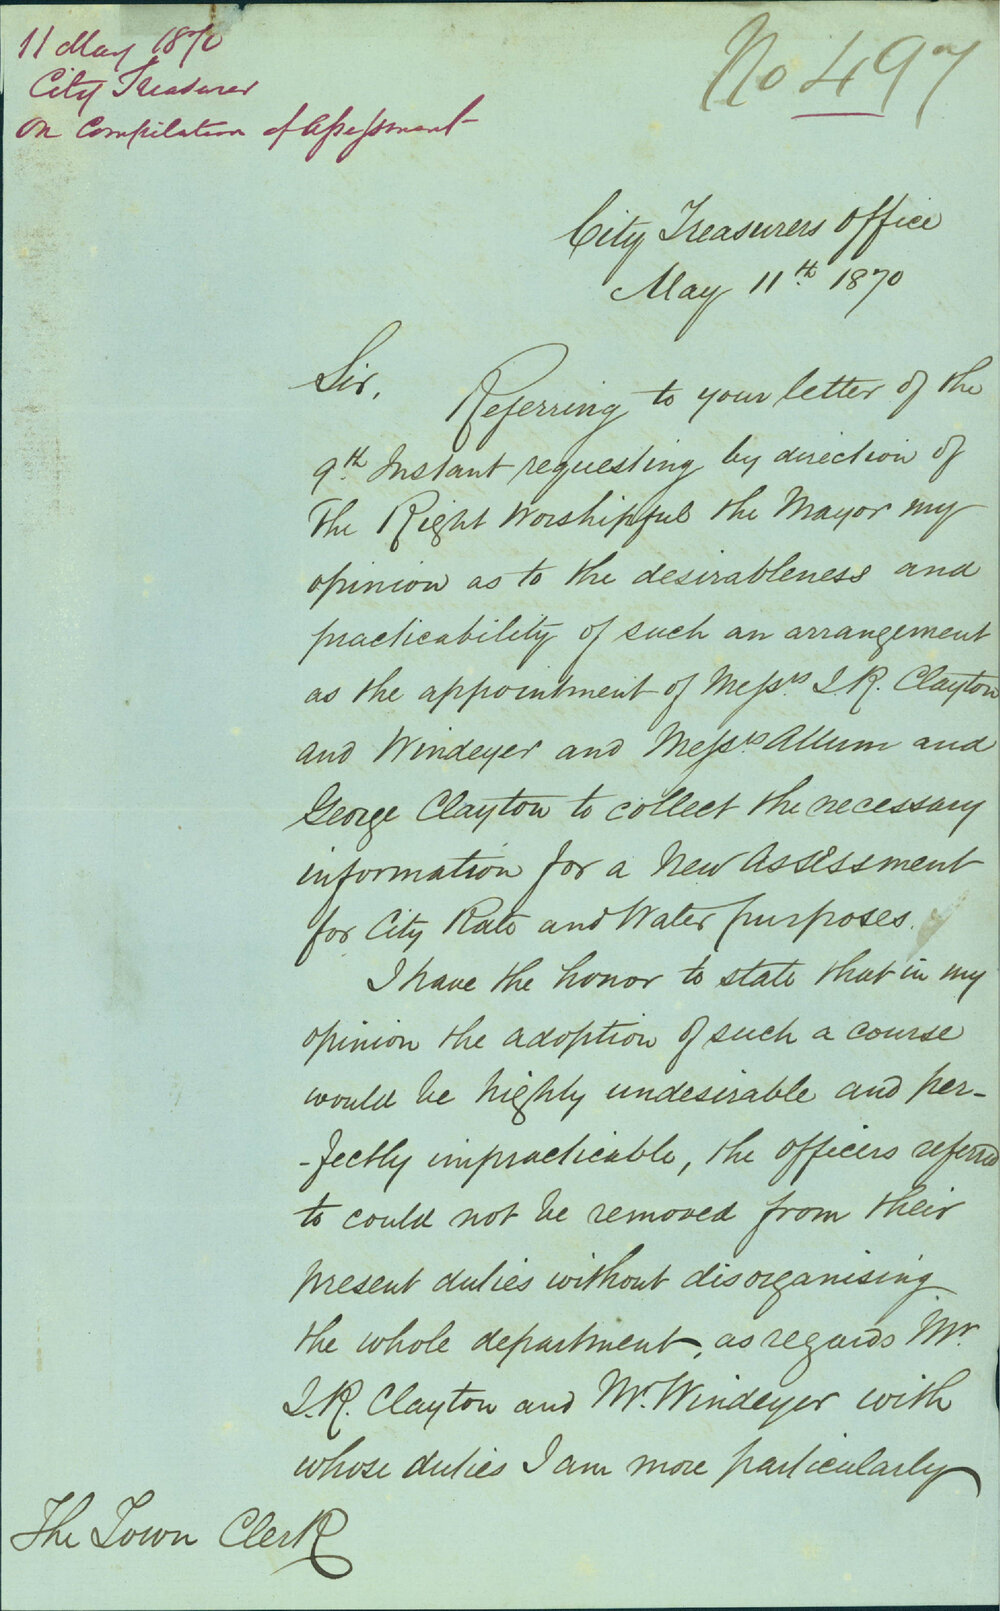 11 May 1870
City Treasurer
On Compilation of Assessment
No 497
City Treasurers Office
May 11th 1870
Sir,
Referring to your letter of the
9th Instant requesting by direction of
the Right Worshipful the Mayor my
opinion as to the desirableness and
practicability of such an arrangement
as the appointment of Messrs I. R. Clayton
and Windeyer and Messrs Allum and
George Clayton to collect the necessary
information for a New Assessment
for City Rate and Water purposes.
I have the honor to state that in my
opinion the adoption of such a course
would be highly undesirable and per-
-fectly impracticable, the officers referred
to could not be removed from their
present duties without disorganising
the whole department, as regards Mr
I. R. Clayton and Mr. Windeyer with
whose duties I am more particularly
The Town Clerk